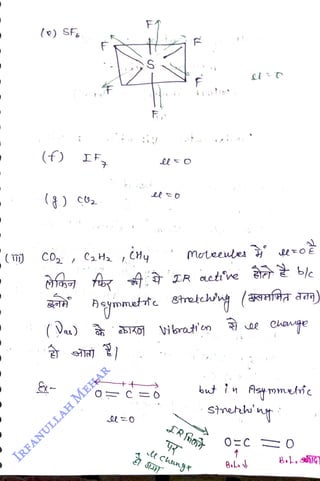 (e) SF₆
F
F
F
S
μ = 0
F
F
F
(f) IF₇ μ = 0
(g) CO₂ μ = 0
(iii) CO₂ , C₂H₂ , CH₄ Molecules में μ=0 है
लेकिन फिर भी ये IR active होते है b/c
इनमें Asymmetric stretching (असममित तनन)
(νas) के कारण Vibration से μ change
हो जाता है।
Ex- O = C = O but in Asymmetric
μ=0 stretching
IR मिलने पर
μ change हो गया
O=C = O
B.L.↓ B.L.
IRFANULLAH MEHAR